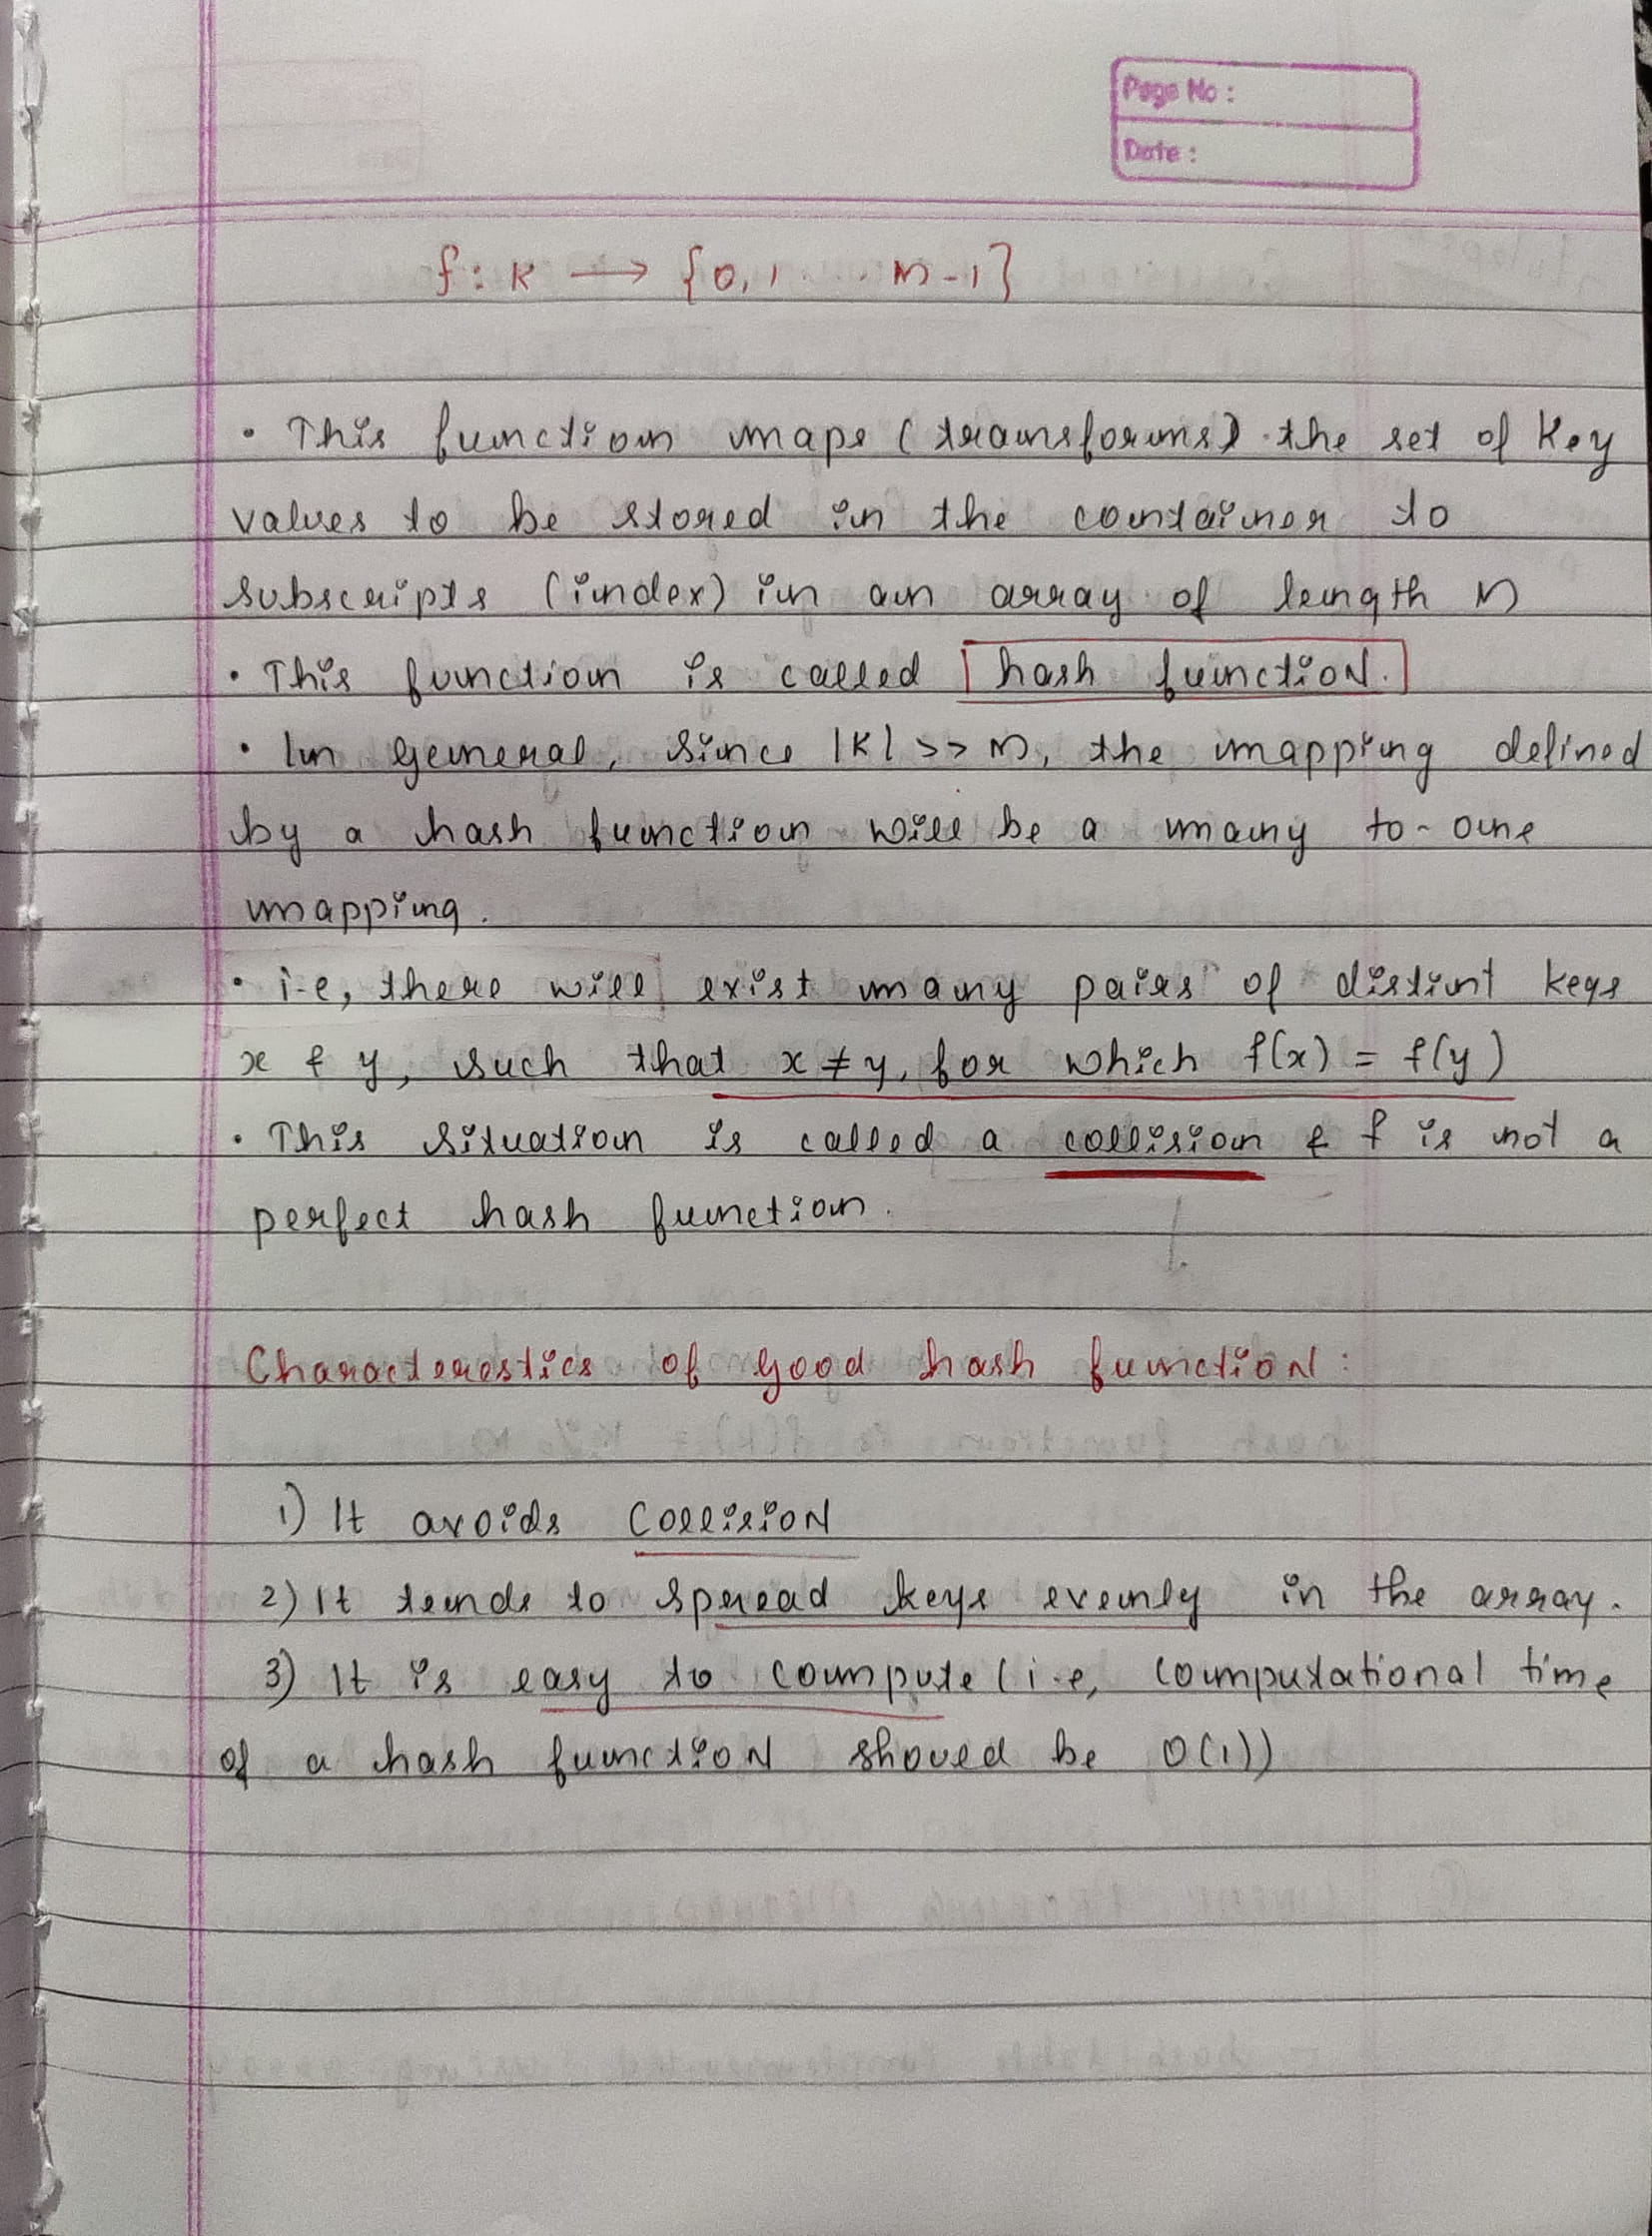 Page No :
Date :
f : K → {0, 1 . . . M-1}
• This function maps (transforms) the set of Key
values to be stored in the container to
subscripts (index) in an array of length M
• This function is called hash function.
• In general, since |K| >> M, the mapping defined
by a hash function will be a many to-one
mapping.
• i.e, there will exist many pairs of distint keys
x & y, such that x ≠ y, for which f(x) = f(y)
• This situation is called a collision & f is not a
perfect hash function.
Characterestics of good hash function :
1) It avoids Collision
2) It tends to spread keys evenly in the array.
3) It is easy to compute (i.e, computational time
of a hash function should be O(1))